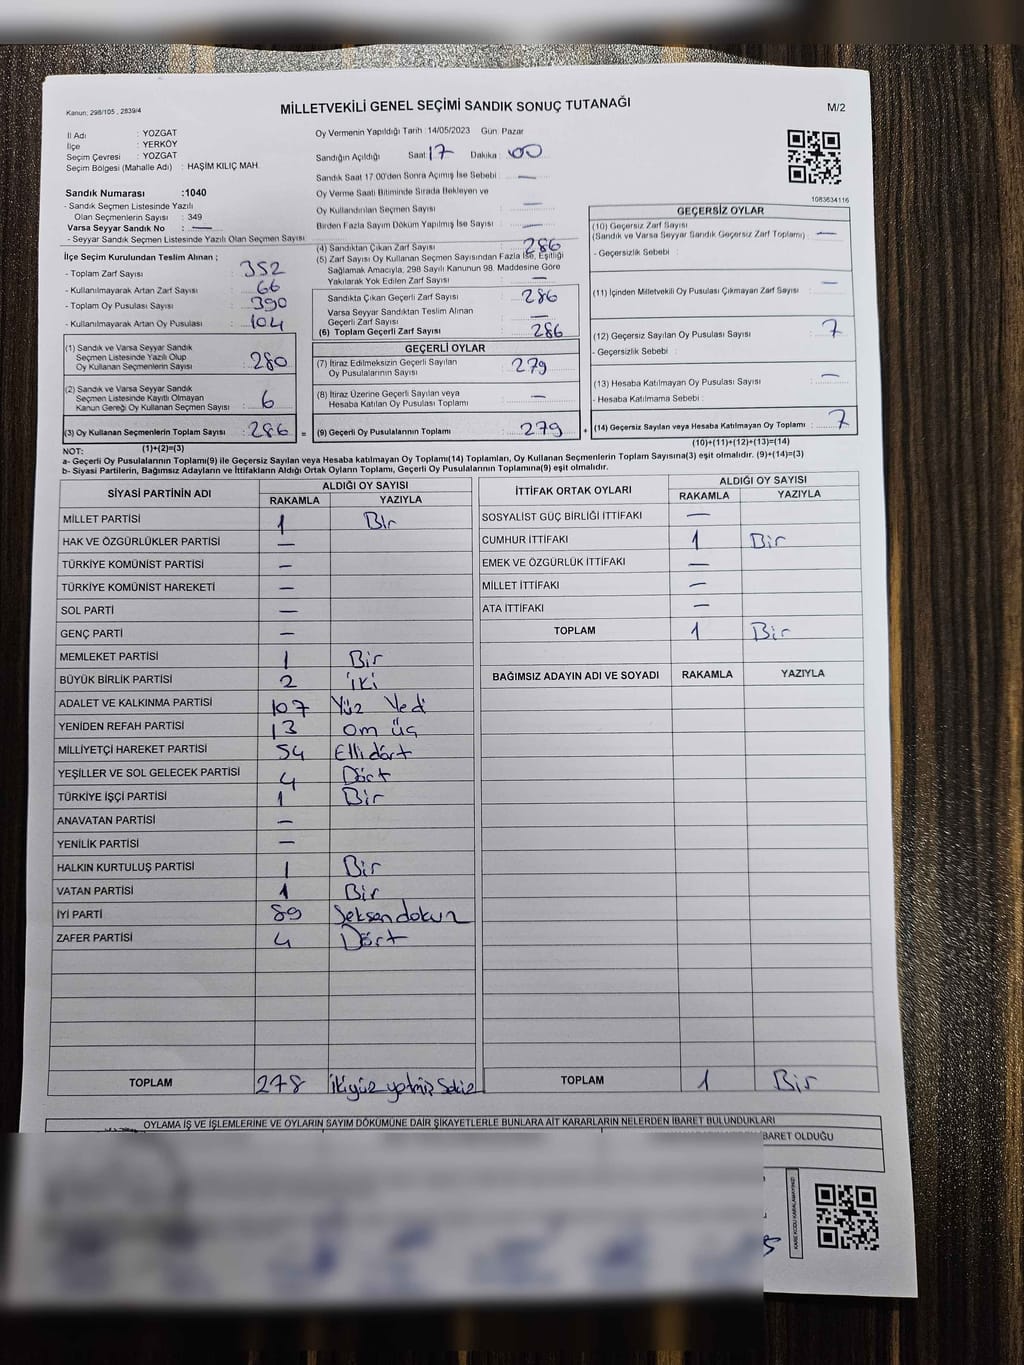 Kanun; 298/105 , 2839/4
MİLLETVEKİLİ GENEL SEÇİMİ SANDIK SONUÇ TUTANAĞI
M/2
İl Adı : YOZGAT
İlçe : YERKÖY
Seçim Çevresi : YOZGAT
Seçim Bölgesi (Mahalle Adı) : HAŞİM KILIÇ MAH.
Sandık Numarası :1040
- Sandık Seçmen Listesinde Yazılı
Olan Seçmenlerin Sayısı : 349
Varsa Seyyar Sandık No : —
- Seyyar Sandık Seçmen Listesinde Yazılı Olan Seçmen Sayısı
Oy Vermenin Yapıldığı Tarih :14/05/2023 Gün Pazar
Sandığın Açıldığı Saat 17 Dakika : 00
Sandık Saat 17.00'den Sonra Açılmış İse Sebebi : —
Oy Verme Saati Bitiminde Sırada Bekleyen ve
Oy Kullandırılan Seçmen Sayısı : —
Birden Fazla Sayım Döküm Yapılmış İse Sayısı : —
1083634116
İlçe Seçim Kurulundan Teslim Alınan ;
- Toplam Zarf Sayısı : 352
- Kullanılmayarak Artan Zarf Sayısı : 66
- Toplam Oy Pusulası Sayısı : 390
- Kullanılmayarak Artan Oy Pusulası : 104
(1) Sandık ve Varsa Seyyar Sandık
Seçmen Listesinde Yazılı Olup
Oy Kullanan Seçmen Sayısı : 280
(2) Sandık ve Varsa Seyyar Sandık
Seçmen Listesinde Kayıtlı Olmayan
Kanun Gereği Oy Kullanan Seçmen Sayısı : 6
(3) Oy Kullanan Seçmenlerin Toplam Sayısı : 286
(4) Sandıktan Çıkan Zarf Sayısı : 286
(5) Zarf Sayısı Oy Kullanan Seçmen Sayısından Fazla İse, Eşitliği
Sağlamak Amacıyla, 298 Sayılı Kanunun 98. Maddesine Göre
Yakılarak Yok Edilen Zarf Sayısı : —
Sandıkta Çıkan Geçerli Zarf Sayısı : 286
Varsa Seyyar Sandıktan Teslim Alınan
Geçerli Zarf Sayısı : —
(6) Toplam Geçerli Zarf Sayısı : 286
GEÇERLİ OYLAR
(7) İtiraz Edilmeksizin Geçerli Sayılan
Oy Pusulalarının Sayısı : 279
(8) İtiraz Üzerine Geçerli Sayılan veya
Hesaba Katılan Oy Pusulası Toplamı : —
= (9) Geçerli Oy Pusulalarının Toplamı : 279
GEÇERSİZ OYLAR
(10) Geçersiz Zarf Sayısı
(Sandık ve Varsa Seyyar Sandık Geçersiz Zarf Toplamı) : —
- Geçersizlik Sebebi :
(11) İçinden Milletvekili Oy Pusulası Çıkmayan Zarf Sayısı : —
(12) Geçersiz Sayılan Oy Pusulası Sayısı : 7
- Geçersizlik Sebebi :
(13) Hesaba Katılmayan Oy Pusulası Sayısı : —
- Hesaba Katılmama Sebebi :
+ (14) Geçersiz Sayılan veya Hesaba Katılmayan Oy Toplamı : 7
NOT: (1)+(2)=(3)
(10)+(11)+(12)+(13)=(14)
a- Geçerli Oy Pusulalarının Toplamı(9) ile Geçersiz Sayılan veya Hesaba katılmayan Oy Toplamı(14) Toplamları, Oy Kullanan Seçmenlerin Toplam Sayısına(3) eşit olmalıdır. (9)+(14)=(3)
b- Siyasi Partilerin, Bağımsız Adayların ve İttifakların Aldığı Ortak Oyların Toplamı, Geçerli Oy Pusulalarının Toplamına(9) eşit olmalıdır.
SİYASİ PARTİNİN ADI ALDIĞI OY SAYISI
RAKAMLA YAZIYLA
MİLLET PARTİSİ 1 Bir
HAK VE ÖZGÜRLÜKLER PARTİSİ —
TÜRKİYE KOMÜNİST PARTİSİ —
TÜRKİYE KOMÜNİST HAREKETİ —
SOL PARTİ —
GENÇ PARTİ —
MEMLEKET PARTİSİ 1 Bir
BÜYÜK BİRLİK PARTİSİ 2 iki
ADALET VE KALKINMA PARTİSİ 107 Yüz Yedi
YENİDEN REFAH PARTİSİ 13 om üç
MİLLİYETÇİ HAREKET PARTİSİ 54 Elli dört
YEŞİLLER VE SOL GELECEK PARTİSİ 4 Dört
TÜRKİYE İŞÇİ PARTİSİ 1 Bir
ANAVATAN PARTİSİ —
YENİLİK PARTİSİ —
HALKIN KURTULUŞ PARTİSİ 1 Bir
VATAN PARTİSİ 1 Bir
İYİ PARTİ 89 Seksen dokuz
ZAFER PARTİSİ 4 Dört
TOPLAM 278 ikiyüz yetmiş Sekiz
İTTİFAK ORTAK OYLARI ALDIĞI OY SAYISI
RAKAMLA YAZIYLA
SOSYALİST GÜÇ BİRLİĞİ İTTİFAKI —
CUMHUR İTTİFAKI 1 Bir
EMEK VE ÖZGÜRLÜK İTTİFAKI —
MİLLET İTTİFAKI —
ATA İTTİFAKI —
TOPLAM 1 Bir
BAĞIMSIZ ADAYIN ADI VE SOYADI RAKAMLA YAZIYLA
TOPLAM 1 Bir
OYLAMA İŞ VE İŞLEMLERİNE VE OYLARIN SAYIM DÖKÜMÜNE DAİR ŞİKAYETLERLE BUNLARA AİT KARARLARIN NELERDEN İBARET BULUNDUKLARI
BARET OLDUĞU
KARE KODU KARALAMAYINIZ!